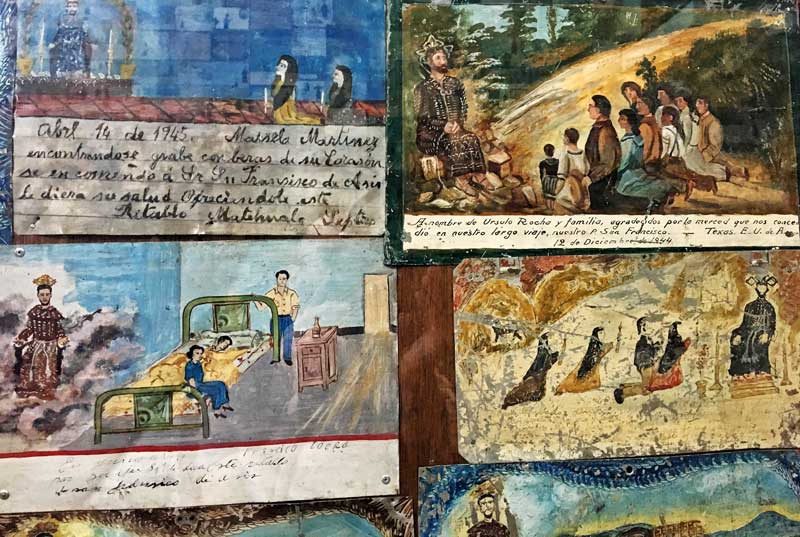 Abril 14 de 1945. Marsela Martinez
encontrandose grabe con beras de su Corasón
se en comendo á Sr. Sn Fransisco de Asis
le diera su salud Ofreciendole este
Retablo Matehuala
A nombre de Ursulo Rocha y familia, agradecidos por la merced que nos conce
dió en nuestro largo viaje, nuestro P. San Francisco. - Texas. E. U. de
12 de Diciembre de 1944.
este retablo
de a sis